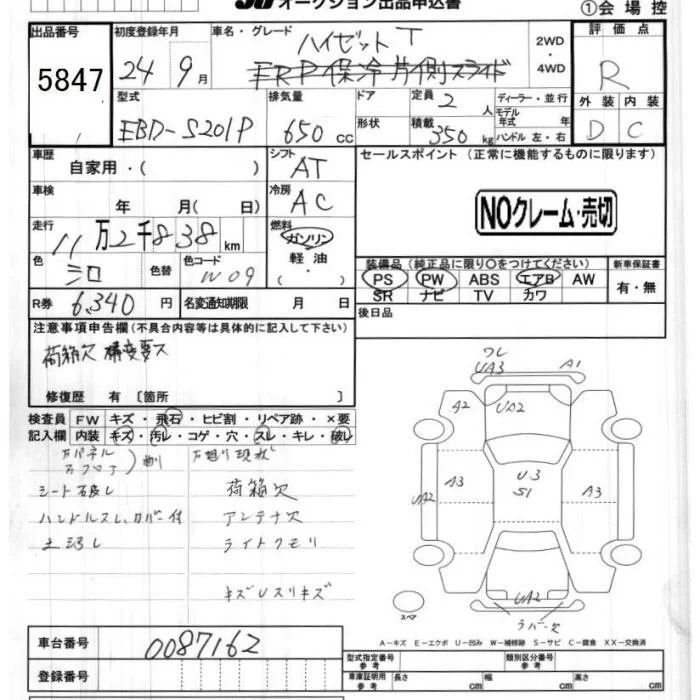 オークション出品申込書
①会場控
出品番号 初度登録年月 車名・グレード 評価点
5847 24年9月 ハイゼットT 2WD・4WD R
FRP保冷片側スライド
型式 排気量 ドア 定員 2人 ディーラー・並行 外装 内装
EBD-S201P 650cc 形状 積載 350kg モデル年式 年 D C
ハンドル 左・右
車歴 自家用・( ) シフト AT セールスポイント(正常に機能するものに限ります)
車検 年 月( 日) 冷房 AC
NOクレーム・売切
走行 11万2千838km 燃料 ガソリン
軽油
( ・ )
色 シロ 色替 色コード W09
装備品(純正品に限り○をつけてください) 新車保証書
PS PW ABS エアB AW 有・無
SR ナビ TV カワ
R券 6,340円 名変通知期限 月 日
後日品
注意事項申告欄(不具合内容等は具体的に記入して下さい)
荷箱欠 構変要ス
修復歴 有〔箇所 〕
検査員 FW キズ・飛石・ヒビ割・リペア跡・×要
記入欄 内装 キズ・汚レ・コゲ・穴・スレ・キレ・破レ
現状
シート破レ 荷箱欠
ハンドルスレ、カバー付 アンテナ欠
ライトクモリ
キズUスリキズ
ワレ
UA3 A1
A2 UA2
UA2 A3 U3 A3
S1
UA2
ラバー欠
スペア
A－キズ E－エクボ U－凹み W－補修跡 S－サビ C－腐食 XX－交換済
車台番号 0087162
登録番号
型式指定番号 参考 類別区分番号 参考
車庫証明用 参考 長さ cm 幅 cm 高さ cm